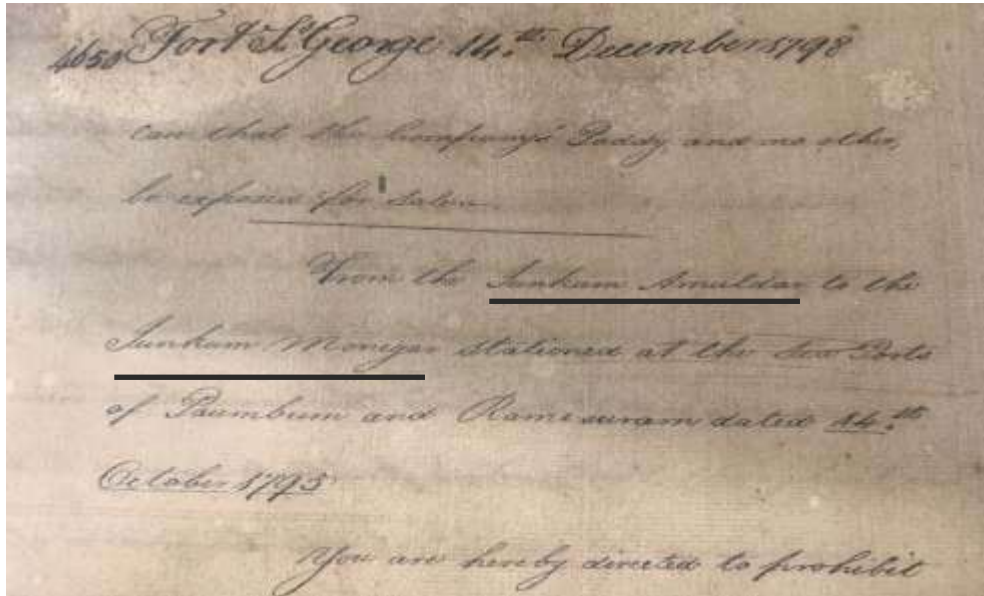 4650 Fort St. George 14.th December 1798
care that the Company's Paddy and no other,
be exposed for Sale.
From the Sunkum Amuldar to the
Sunkum Monigar stationed at the Sea Ports
of Paumbum and Ramiseuram dated 14.th
October 1795
You are hereby directed to prohibit